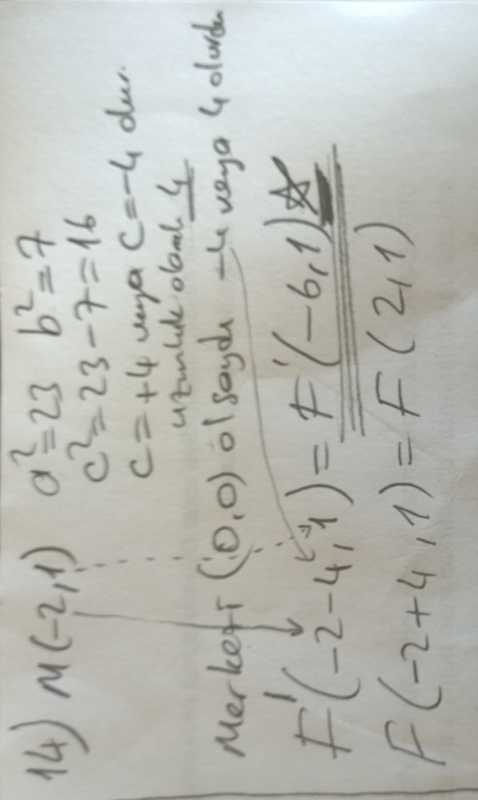 14) M(-2,1) a²=23 b²=7
c²=23-7=16
c=+4 veya c=-4 dür.
uzunluk olarak 4
Merkezi (0,0) olsaydı -4 veya 4 olurdu
F'(-2-4,1)=F'(-6,1)☆
F(-2+4,1)=F(2,1)